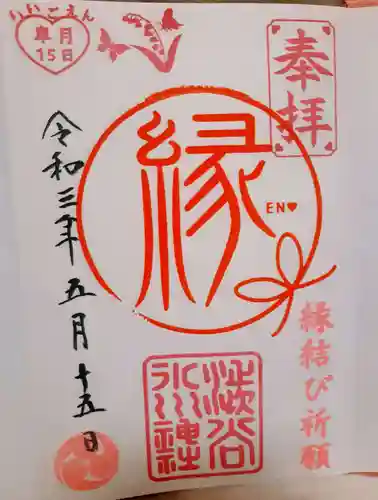 奉拝
縁
EN♥
縁結び祈願
渋谷
氷川神社
いいごえん
皐月
15日
令和三年五月十五日